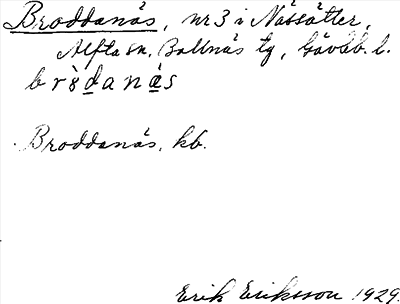 Broddanäs, nr 3 i Nässätter,
Alfta sn. Bollnäs tg, Gävleb. l.
Broddanäs, kb.
Erik Eriksson 1929.